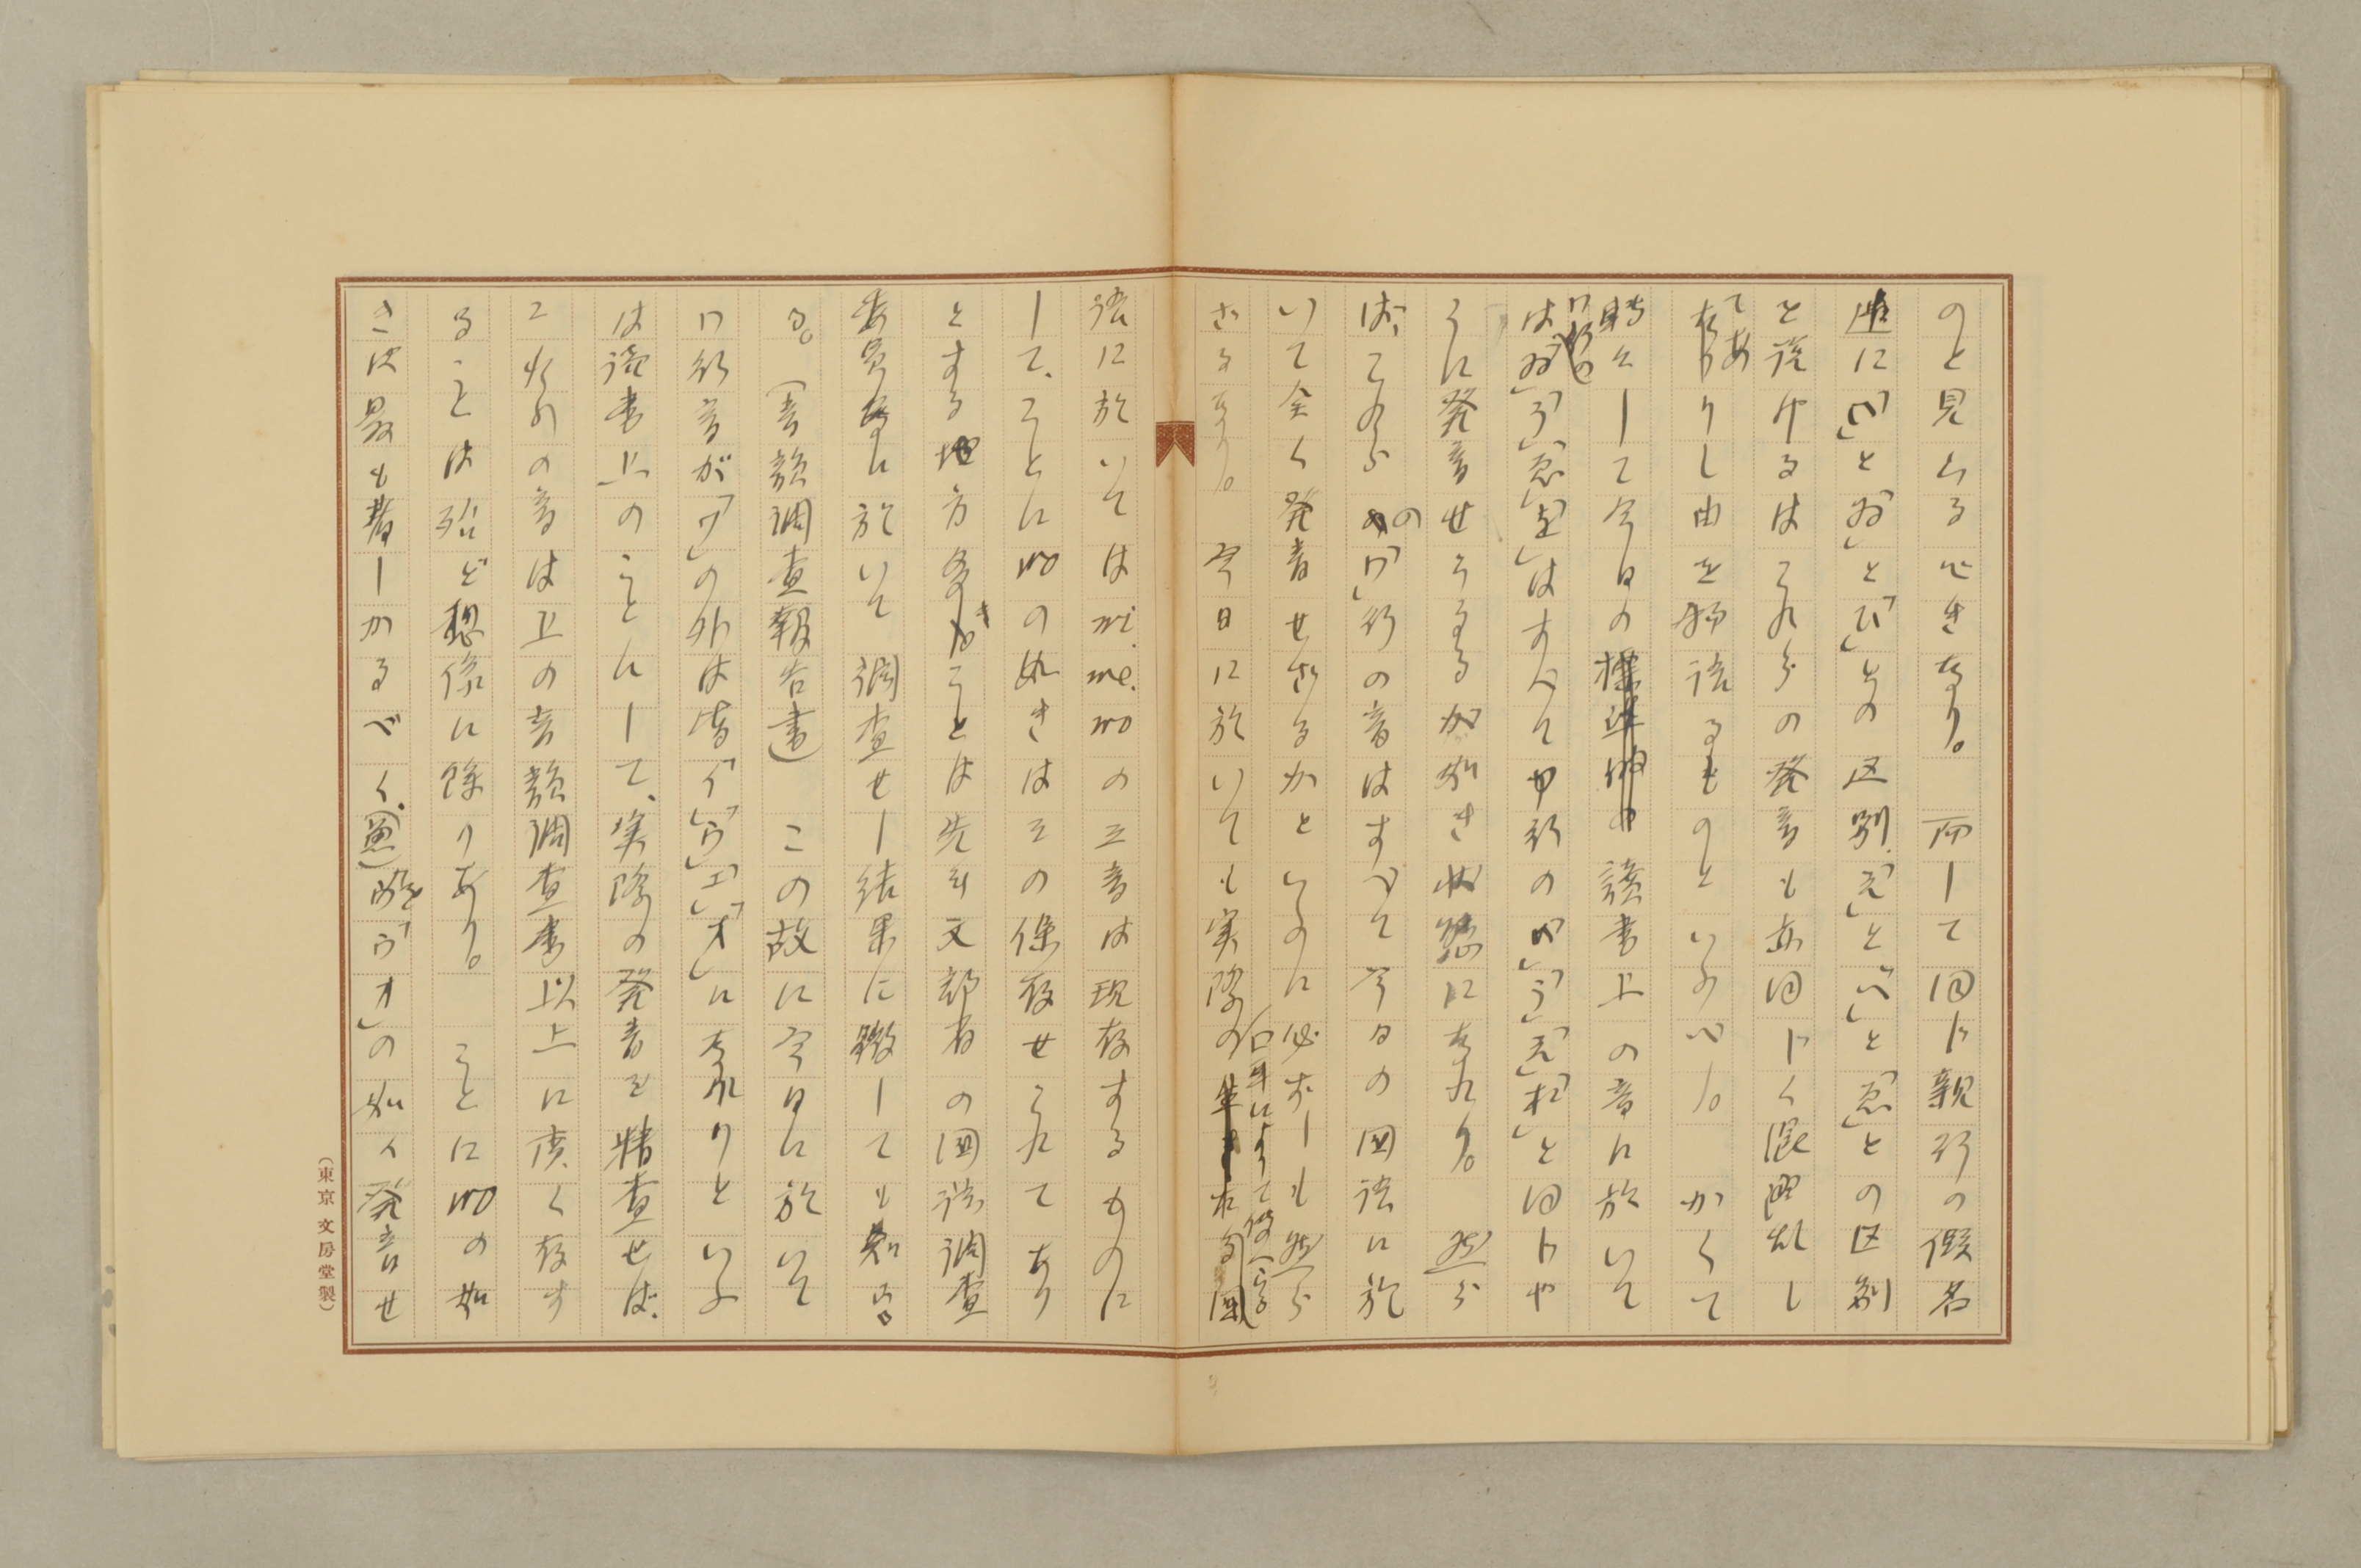 のと見らるべきなり。而して同じ親行の仮名
遣に「ひ」と「ゐ」と「い」との区別「え」と「へ」と「ゑ」との区別
と説けるはこれらの発音も亦同じく混乱し
てありし由を物語るものといふべし。かくて
転じて今日の読書上の音に於いて
は「ゐ」「う」「ゑ」「を」はすべてや行の「い」「う」「え」「お」と同じや
うに発音せらるるが如き状態になれり。然ら
ば、これらの「ワ」行の音はすべて今日の国語に於
いて全く発音せざるかといふに必ずしも然ら
ざるなり。今日に於いても実際の
語に於いてはwi. we. woの三音は現存するものに
して、ことにwoの如きはその保存せられてあり
とする地方多きことは先年文部省の国語調査
委員会に於いて調査せし結果に徴しても知ら
る。(音韻調査報告書)この故に今日に於いて
ワ行音が「ワ」の外は皆「イ」「ウ」「エ」「オ」になれりといふ
は読書上のことにして、実際の発音を精査せば、
これらの音は上の音韻調査書以上に広く存す
ることは殆ど想像に余りあり。ことにwoの如
きは最も著しかるべく、(魚)を「ウオ」の如く発音せ
(東京文房堂製)